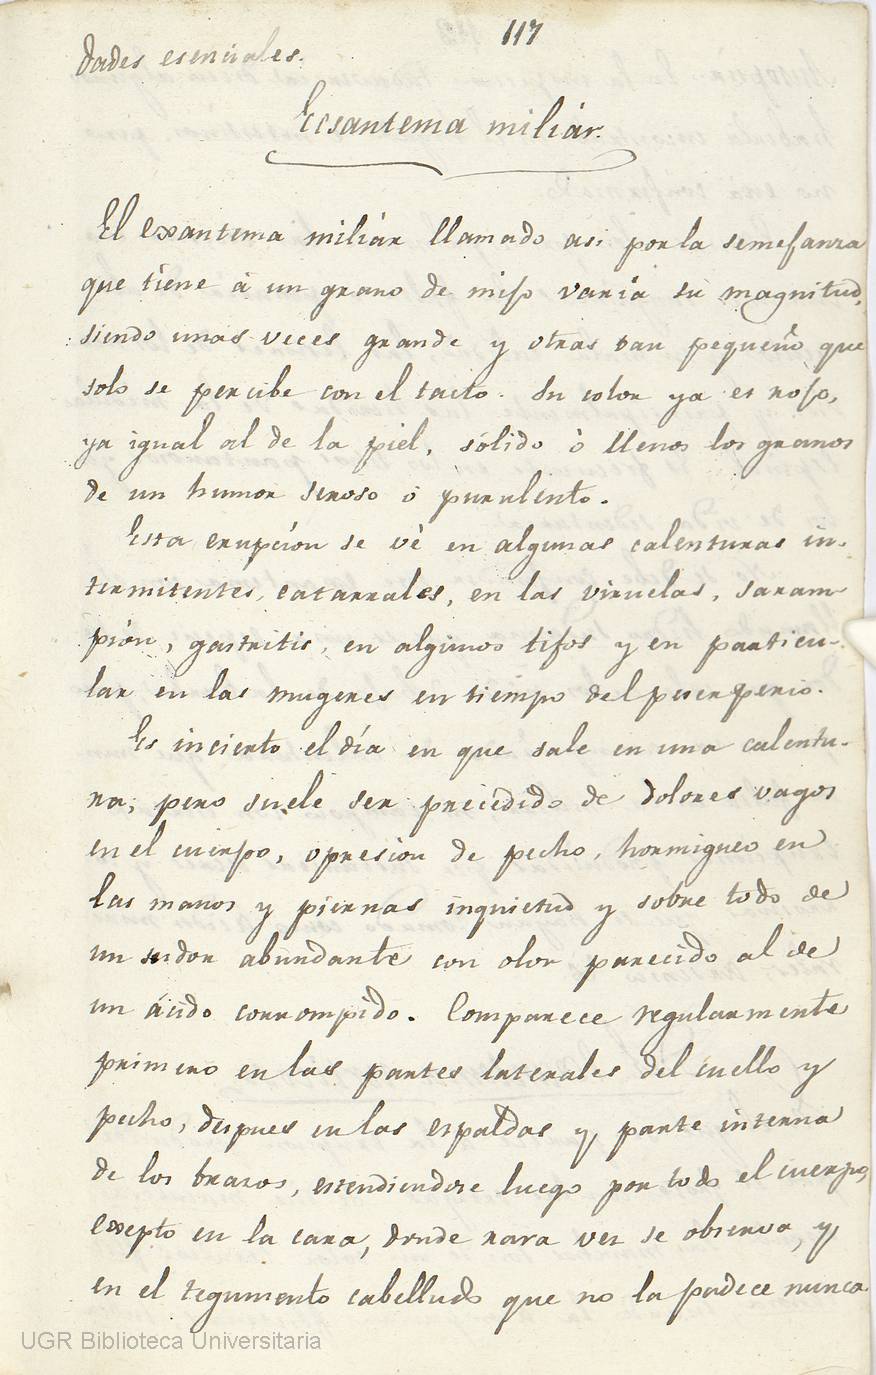 117
dades esenciales.
Ecsantema miliár.
El exantema miliár llamado asi por la semejanza
que tiene á un grano de mijo varía su magnitud,
siendo unas veces grande y otras tan pequeño que
solo se percibe con el tacto. Su color ya es rojo,
ya igual al de la piel, sólido ò llenos los granos
de un humor seroso o purulento.
Esta erupción se vè en algunas calenturas in-
termitentes, catarrales, en las viruelas, saram-
pión, gastritis, en algunos tifos y en particu-
lar en las mugeres en tiempo del puerperio.
Es incierto el día en que sale en una calentu-
ra; pero suele ser precedido de dolores vagos
en el cuerpo, opresion de pecho, hormigueo en
las manos y piernas inquietud y sobre todo de
un sudor abundante con olor parecido al de
un ácido corrompido. Comparece regularmente
primero en las partes laterales del cuello y
pecho, despues en las espaldas y parte interna
de los brazos, estendiendose luego por todo el cuerpo,
exepto en la cara, donde rara vez se observa, y
en el tegumento cabelludo que no la padece nunca
UGR Biblioteca Universitaria